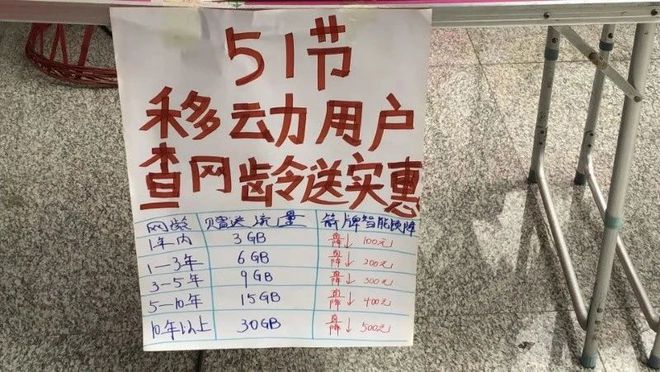 51节
移动用户
查网龄送实惠
网龄 赠送流量 箭牌智能换降
1年内 3GB 直降↓100元
1—3年 6GB 直降↓200元
3—5年 9GB 直降↓300元
5—10年 15GB 直降↓400元
10年以上 30GB 直降↓500元